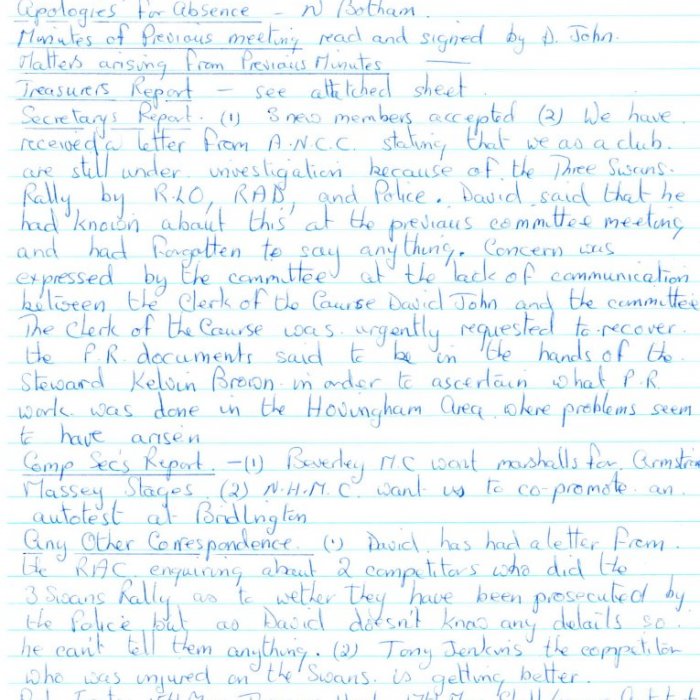 Apologies for Absence - N Botham.
Minutes of Previous meeting read and signed by D. John.
Matters arising from Previous Minutes —
Treasurers Report - see attetched sheet.
Secretarys Report. (1) 3 new members accepted (2) We have
received a letter from A.N.C.C. stating that we as a club
are still under investigation because of the Three Swans
Rally by RLO, RAB, and Police. David said that he
had known about this at the previous committee meeting
and had forgotten to say anything. Concern was
expressed by the committee at the lack of communication
between the Clerk of the Course David John and the committee
The Clerk of the Course was urgently requested to recover
the P.R. documents said to be in the hands of the
Steward Kelvin Brown in order to ascertain what P.R.
work was done in the Hovingham Area where problems seem
to have arisen
Comp Sec's Report. - (1) Beverley M.C want marshalls for Armstron
Massey Stages. (2) N.H.M.C. want us to co-promote an
autotest at Bridlington
Any Other Correspondence. (1) David has had a letter from
the RAC enquiring about 2 competitors who did the
3 Swans Rally as to wether they have been prosecuted by
the Police but as David doesn't know any details so
he can't tell them anything. (2) Tony Jenkins the competitor
who was injured on the Swans is getting better.